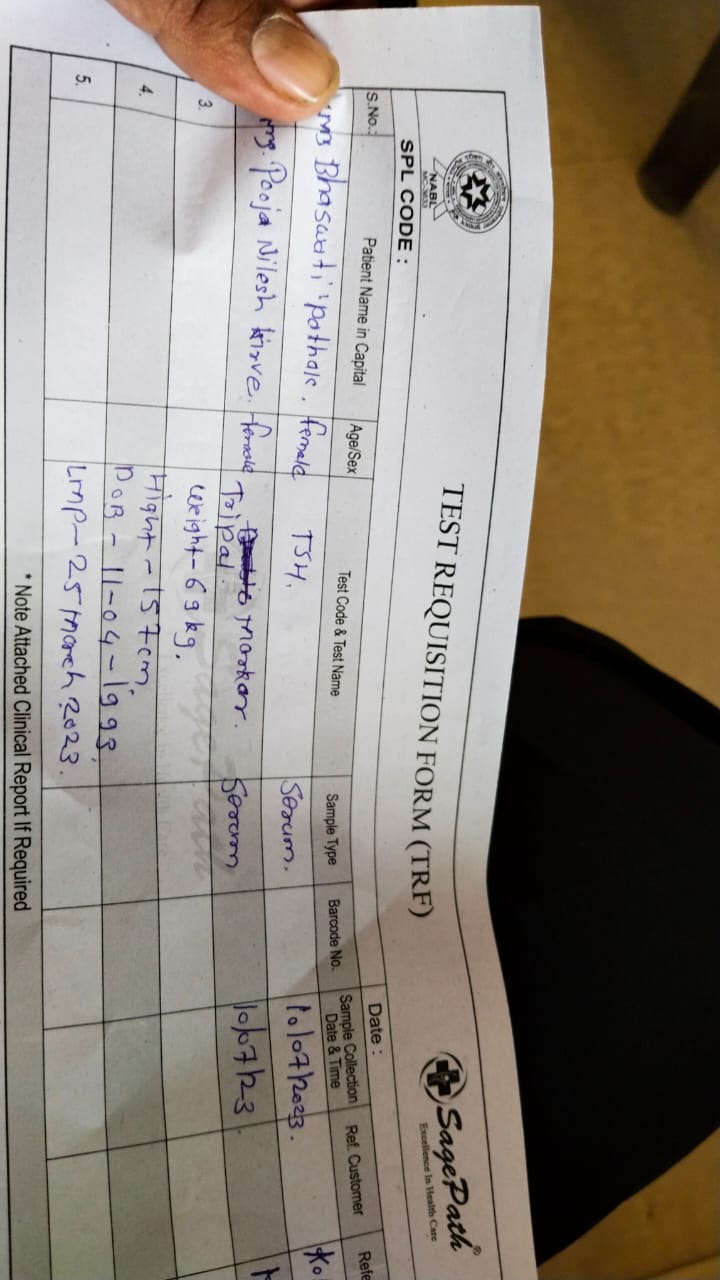 NABL
TEST REQUISITION FORM (TRF)
SagePath®
Excellence In Health Care
SPL CODE :
Date :
S.No.: Patient Name in Capital Age/Sex Test Code & Test Name Sample Type Barcode No. Sample Collection Date & Time Ref. Customer Refe
Bhaswati pathak. female TSH. Serum. 10/07/2023. Ko
Pooja Nilesh Hirve. female Tripal Marker. Serum 10/07/23. K
3. Weight - 69 kg.
4. Hight - 157 cm.
DOB - 11-04-1993.
5. LMP - 25 March 2023.
* Note Attached Clinical Report If Required